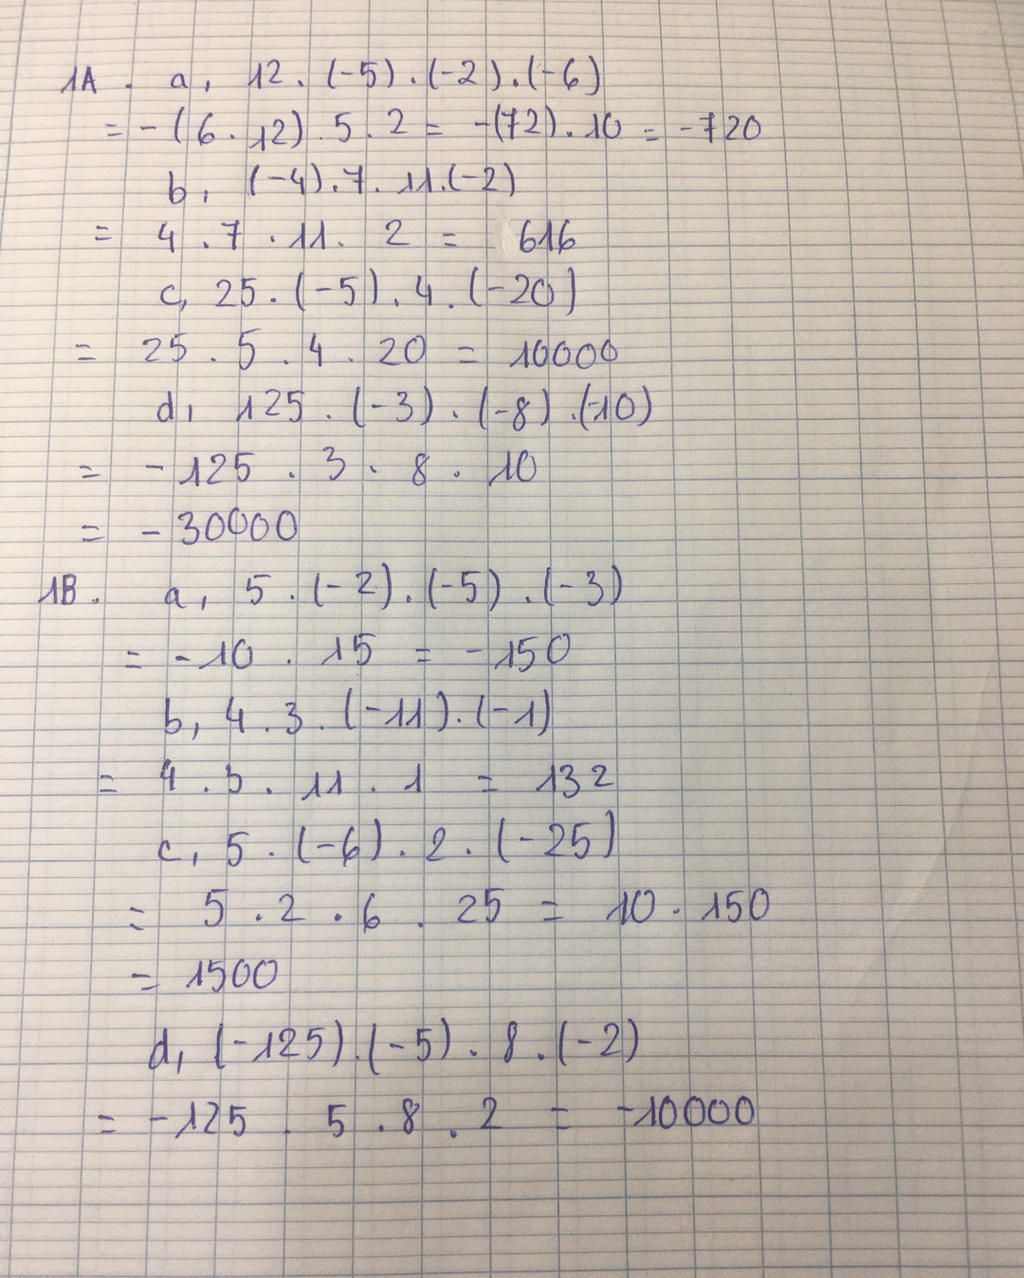 1A. a, 12.(-5).(-2).(-6)
= -(6.12).5.2 = -(72).10 = -720
b, (-4).7.11.(-2)
= 4.7.11.2 = 616
c, 25.(-5).4.(-20)
= 25.5.4.20 = 10000
d, 125.(-3).(-8).(-10)
= -125.3.8.10
= -30000
1B. a, 5.(-2).(-5).(-3)
= -10.15 = -150
b, 4.3.(-11).(-1)
= 4.3.11.1 = 132
c, 5.(-6).2.(-25)
= 5.2.6.25 = 10.150
= 1500
d, (-125).(-5).8.(-2)
= -125.5.8.2 = -10000